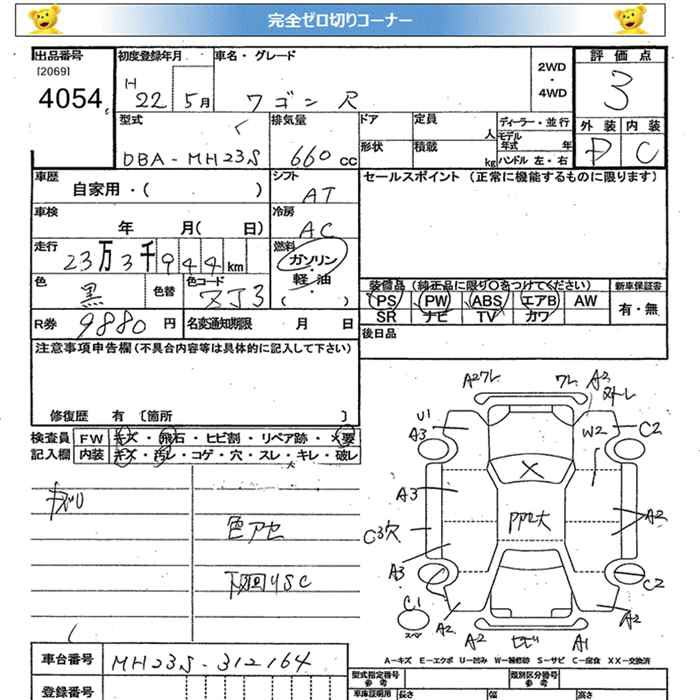 完全ゼロ切りコーナー
出品番号
[2069]
4054
初度登録年月
H
22 5月
車名・グレード
ワゴン R
2WD
・
4WD
評価点
3
外装 内装
D C
型式
DBA-MH23S
排気量
660 cc
ドア
定員
人
形状
積載
kg
ディーラー・並行
モデル
年式 年
ハンドル 左・右
車歴
自家用・( )
シフト
AT
セールスポイント (正常に機能するものに限ります)
車検
年 月( 日)
冷房
AC
走行
23万3千944km
燃料
ガソリン
・
軽油
( )
色
黒
色替
色コード
ZJ3
装備品 (純正品に限り○をつけてください)
新車保証書
PS PW ABS エアB AW
SR ナビ TV カワ
有・無
R券 9880 円
名変通知期限 月 日
後日品
注意事項申告欄(不具合内容等は具体的に記入して下さい)
修復歴 有 〔箇所 〕
検査員
記入欄
FW キズ・飛石・ヒビ割・リペア跡・×要
内装 キズ・汚レ・コゲ・穴・スレ・キレ・破レ
色アセ
下廻りSC
A2ワレ
ワレ
A2
U1
A3
W2
C2
A3
X
PP2大
C3穴
A2
A3
C2
C1
スペア
A2
A2
A2
A1
A-キズ E-エクボ U-凹み W-補修跡 S-サビ C-腐食 XX-交換済
車台番号
MH23S-312164
登録番号
型式指定番号
参考
類別区分番号
参考
車庫証明用
長さ
幅
高さ